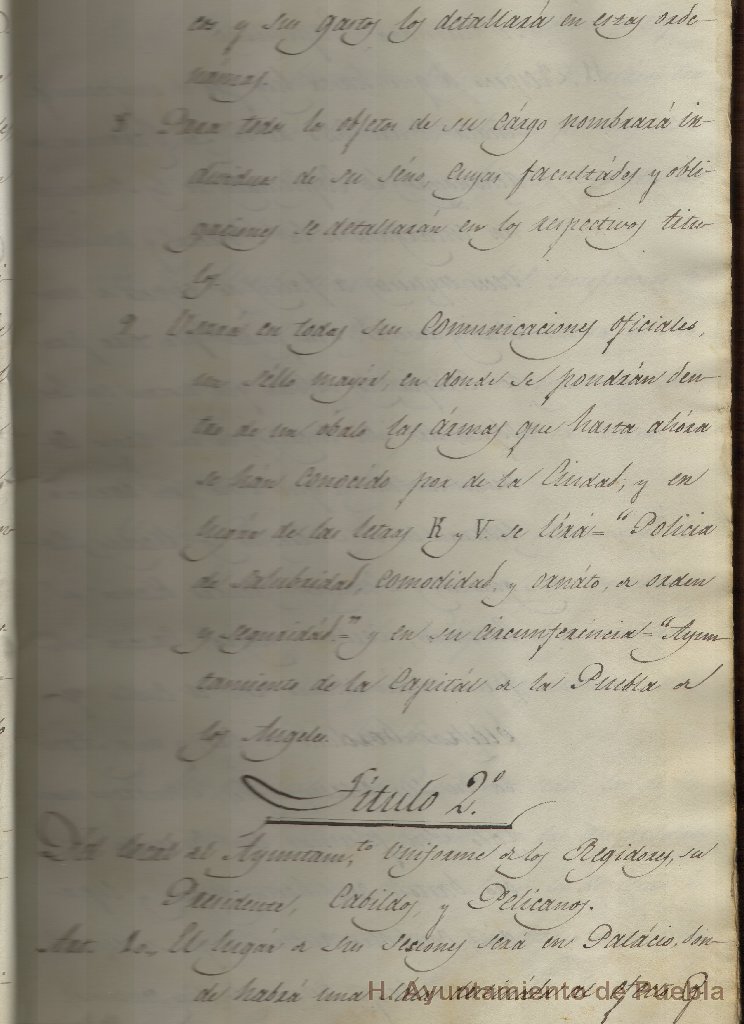 cos, y sus gastos los detallará en estas orde-
nánzas.
8. Para todos los objetos de su cárgo nombrará in-
dividuos de su séno, cuyas facultádes y obli-
gaciones se detallarán en los respectivos títu-
los.
9. Usará en todas sus comunicaciones oficiales,
un séllo mayór, en donde se pondrán den-
tro de un óbalo las ármas que hasta ahóra
se hán conocido por de la Ciudad, y en
lugár de las letras K y V. se lérá = "Policia
de salubridad, comodidad, y ornáto, de orden
y seguridád =" y en su circunferéncia = "Ayun-
tamiento de la Capitál de la Puebla de
los Angeles.
Título 2.º
Del locál del Ayuntam.to Uniforme de los Regidores, su
Presidente, Cabildos, y Pelicanos.
Art. El lugár de sus sesiones será en Palácio, don-
de habrá una de
H. Ayuntamiento de Puebla